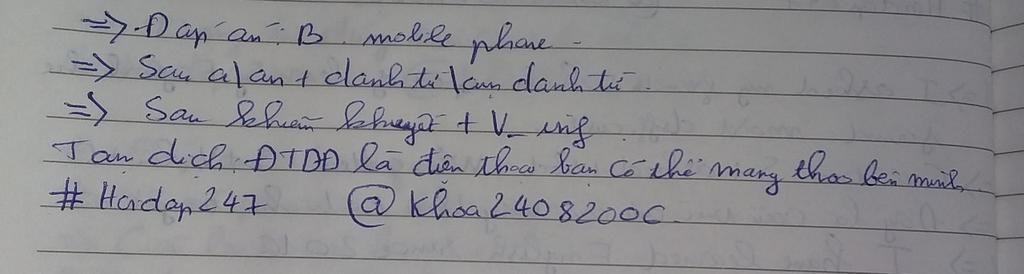 => Đáp án: B. mobile phone -
=> Sau a/an + danh từ/cụm danh từ.
=> Sau khiếm khuyết + V_inf
Tạm dịch ĐTDĐ là điện thoại bạn có thể mang theo bên mình
# Hoidap247 @ Khoa24082006